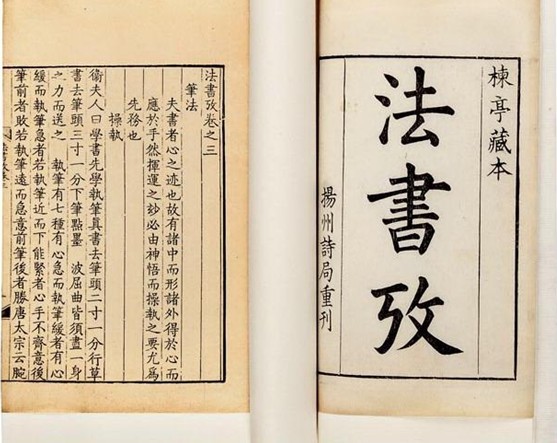 楝亭藏本
法書攷
揚州詩局重刊
法書攷卷之三
筆法
夫書者心之迹也故有諸中而形諸外得於心而
應於手然揮運之妙必由神悟而操執之要尤為
先務也
操執
衛夫人曰學書先學執筆真書去筆頭二寸一分行草
書去筆頭三寸一分下筆點墨 波屈曲皆須盡一身
之力而送之 執筆有七種有心急而執筆緩者有心
緩而執筆急者若執筆近而下能緊者心手不齊意後
筆前者敗若執筆遠而急意前筆後者勝唐太宗云腕